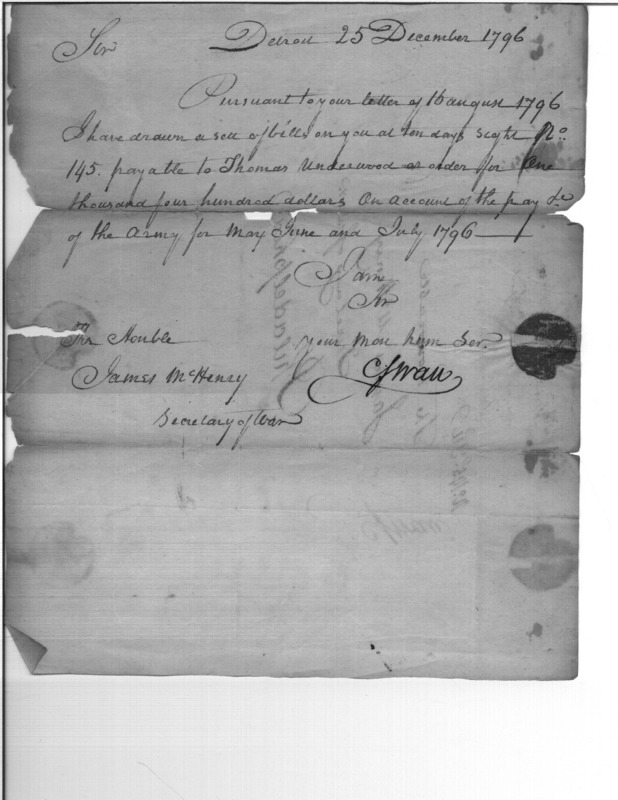 Sir Detroit 25 December 1796
Pursuant to your letter of 16 august 1796
I have drawn a sett of bills on you at ten days sight No.
145. payable to Thomas Underwood or order for One
thousand four hundred dollars On account of the pay &c
of the Army for May June and July 1796
I am
Sir
The Honble your Most hum Ser.
James McHenry CSwan
Secretary of War